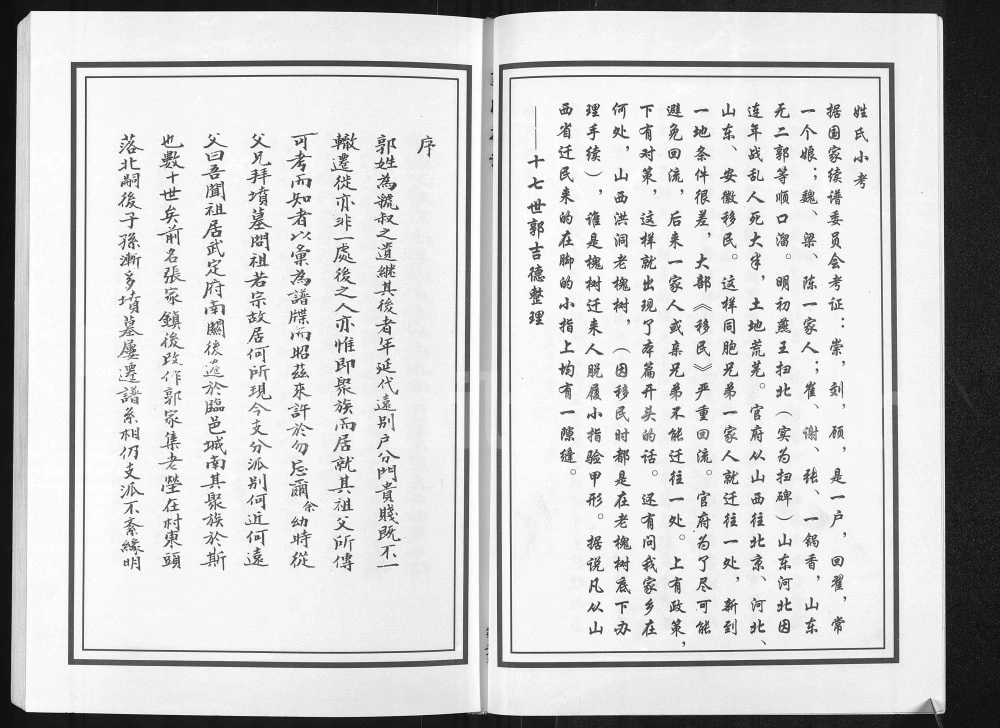 姓氏小考
据国家续谱委员会考证：崇，刘，顾，是一户，回翟，常
一个娘；魏、梁、陈一家人；崔、谢、张、一锅香，山东
无二郭等顺口溜。明初燕王扫北（实为扫碑）山东河北因
连年战乱人死大半，土地荒芜。官府从山西往北京、河北、
山东、安徽移民。这样同胞兄弟一家人就迁往一处，新到
一地条件很差，大部《移民》严重回流。官府为了尽可能
避免回流，后来一家人或亲兄弟不能迁往一处。上有政策，
下有对策，这样就出现了本篇开头的话。还有问我家乡在
何处，山西洪洞老槐树，（因移民时都是在老槐树底下办
理手续），谁是槐树迁来人脱履小指验甲形。据说凡从山
西省迁民来的在脚的小指上均有一隙缝。
——十七世郭吉德整理
序
郭姓為虢叔之遺継其後者年延代遠别户分門貴賤既不一
轍遷徙亦非一處後之人亦惟即聚族而居就其祖父所傳
可考而知者以彙為譜牒而昭茲來許於勿忘爾余幼時從
父兄拜墳墓問祖若宗故居何所現今支分派别何近何遠
父曰吾聞祖居武定府南關後遷於臨邑城南其聚族於斯
也數十世矣前名張家鎮後改作郭家集老塋在村東頭
落北嗣後子孫漸多墳墓屢遷譜系相仍支派不紊緣明